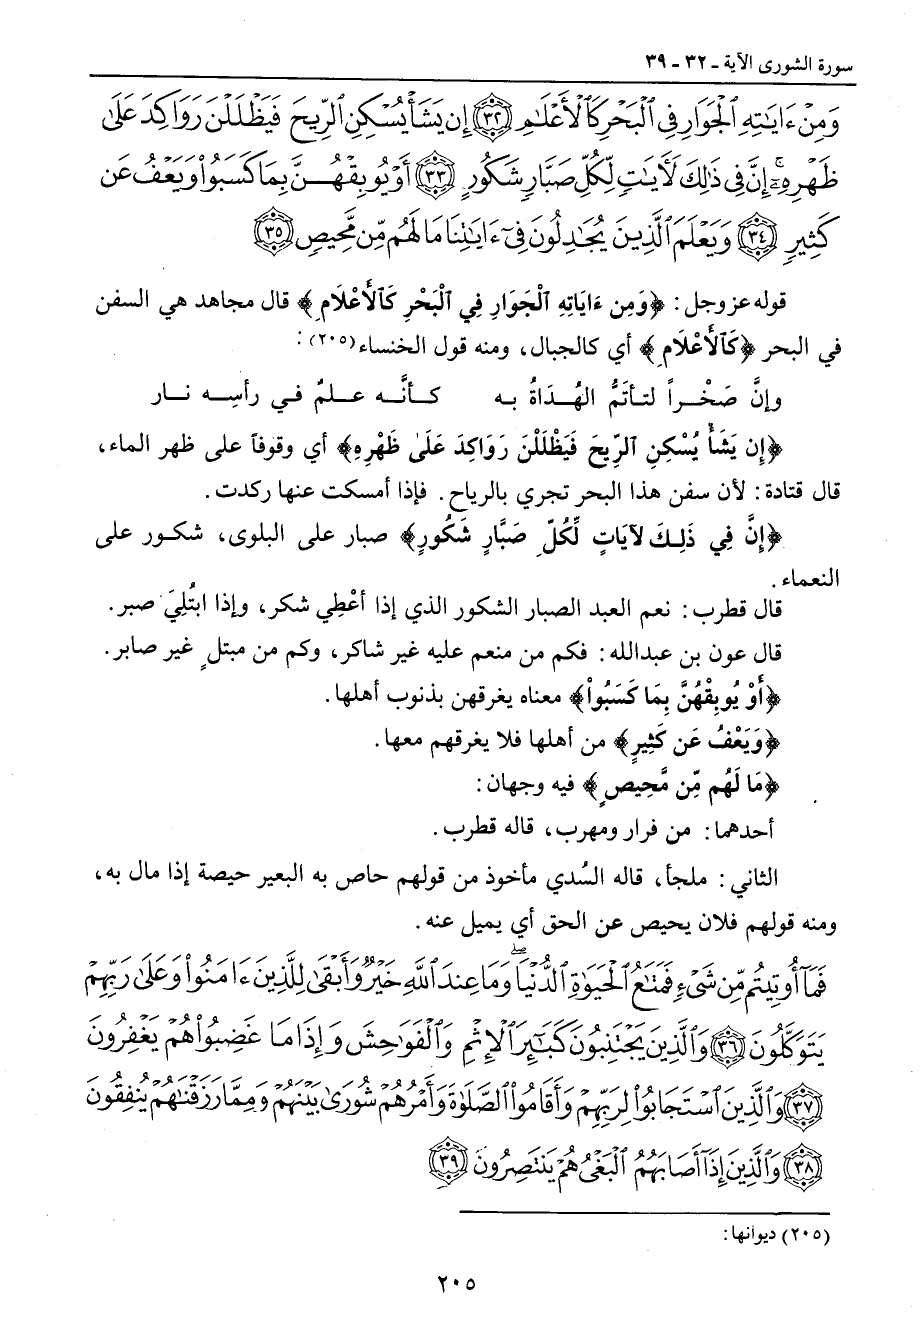 سورة الشورى الآية ـ ٣٢ ـ ٣٩
وَمِنْ ءَايَٰتِهِ ٱلْجَوَارِ فِى ٱلْبَحْرِ كَٱلْأَعْلَٰمِ ﴿٣٢﴾ إِن يَشَأْ يُسْكِنِ ٱلرِّيحَ فَيَظْلَلْنَ رَوَاكِدَ عَلَىٰ
ظَهْرِهِۦٓ إِنَّ فِى ذَٰلِكَ لَأَيَٰتٍ لِّكُلِّ صَبَّارٍ شَكُورٍ ﴿٣٣﴾ أَوْ يُوبِقْهُنَّ بِمَا كَسَبُوا۟ وَيَعْفُ عَن
كَثِيرٍ ﴿٣٤﴾ وَيَعْلَمَ ٱلَّذِينَ يُجَٰدِلُونَ فِىٓ ءَايَٰتِنَا مَا لَهُم مِّن مَّحِيصٍ ﴿٣٥﴾
قوله عز وجل: ﴿وَمِن ءَايَاتِهِ ٱلْجَوَارِ فِي ٱلْبَحْرِ كَٱلْأَعْلَامِ﴾ قال مجاهد هي السفن
في البحر ﴿كَٱلْأَعْلَامِ﴾ أي كالجبال، ومنه قول الخنساء(٢٠٥):
وإنَّ صَخْراً لتأتَمُّ الهُدَاةُ به كأنَّه علمٌ في رأسِه نار
﴿إِن يَشَأْ يُسْكِنِ ٱلرِّيحَ فَيَظْلَلْنَ رَوَاكِدَ عَلَىٰ ظَهْرِهِ﴾ أي وقوفاً على ظهر الماء،
قال قتادة: لأن سفن هذا البحر تجري بالرياح. فإذا أمسكت عنها ركدت.
﴿إِنَّ فِي ذَلِكَ لآيَاتٍ لِّكُلِّ صَبَّارٍ شَكُورٍ﴾ صبار على البلوى، شكور على
النعماء.
قال قطرب: نعم العبد الصبار الشكور الذي إذا أعْطِي شكر، وإذا ابتُلِيَ صبر.
قال عون بن عبدالله: فكم من منعم عليه غير شاكر، وكم من مبتلٍ غير صابر.
﴿أَوْ يُوبِقْهُنَّ بِمَا كَسَبُواْ﴾ معناه يغرقهن بذنوب أهلها.
﴿وَيَعْفُ عَن كَثِيرٍ﴾ من أهلها فلا يغرقهم معها.
﴿مَا لَهُم مِّن مَّحِيصٍ﴾ فيه وجهان:
أحدهما: من فرار ومهرب، قاله قطرب.
الثاني: ملجأ، قاله السُدي مأخوذ من قولهم حاص به البعير حيصة إذا مال به،
ومنه قولهم فلان يحيص عن الحق أي يميل عنه.
فَمَآ أُوتِيتُم مِّن شَىْءٍ فَمَتَٰعُ ٱلْحَيَوٰةِ ٱلدُّنْيَا ۖ وَمَا عِندَ ٱللَّهِ خَيْرٌ وَأَبْقَىٰ لِلَّذِينَ ءَامَنُوا۟ وَعَلَىٰ رَبِّهِمْ
يَتَوَكَّلُونَ ﴿٣٦﴾ وَٱلَّذِينَ يَجْتَنِبُونَ كَبَٰٓئِرَ ٱلْإِثْمِ وَٱلْفَوَٰحِشَ وَإِذَا مَا غَضِبُوا۟ هُمْ يَغْفِرُونَ
﴿٣٧﴾ وَٱلَّذِينَ ٱسْتَجَابُوا۟ لِرَبِّهِمْ وَأَقَامُوا۟ ٱلصَّلَوٰةَ وَأَمْرُهُمْ شُورَىٰ بَيْنَهُمْ وَمِمَّا رَزَقْنَٰهُمْ يُنفِقُونَ
﴿٣٨﴾ وَٱلَّذِينَ إِذَآ أَصَابَهُمُ ٱلْبَغْىُ هُمْ يَنتَصِرُونَ ﴿٣٩﴾
(٢٠٥) ديوانها:
٢٠٥